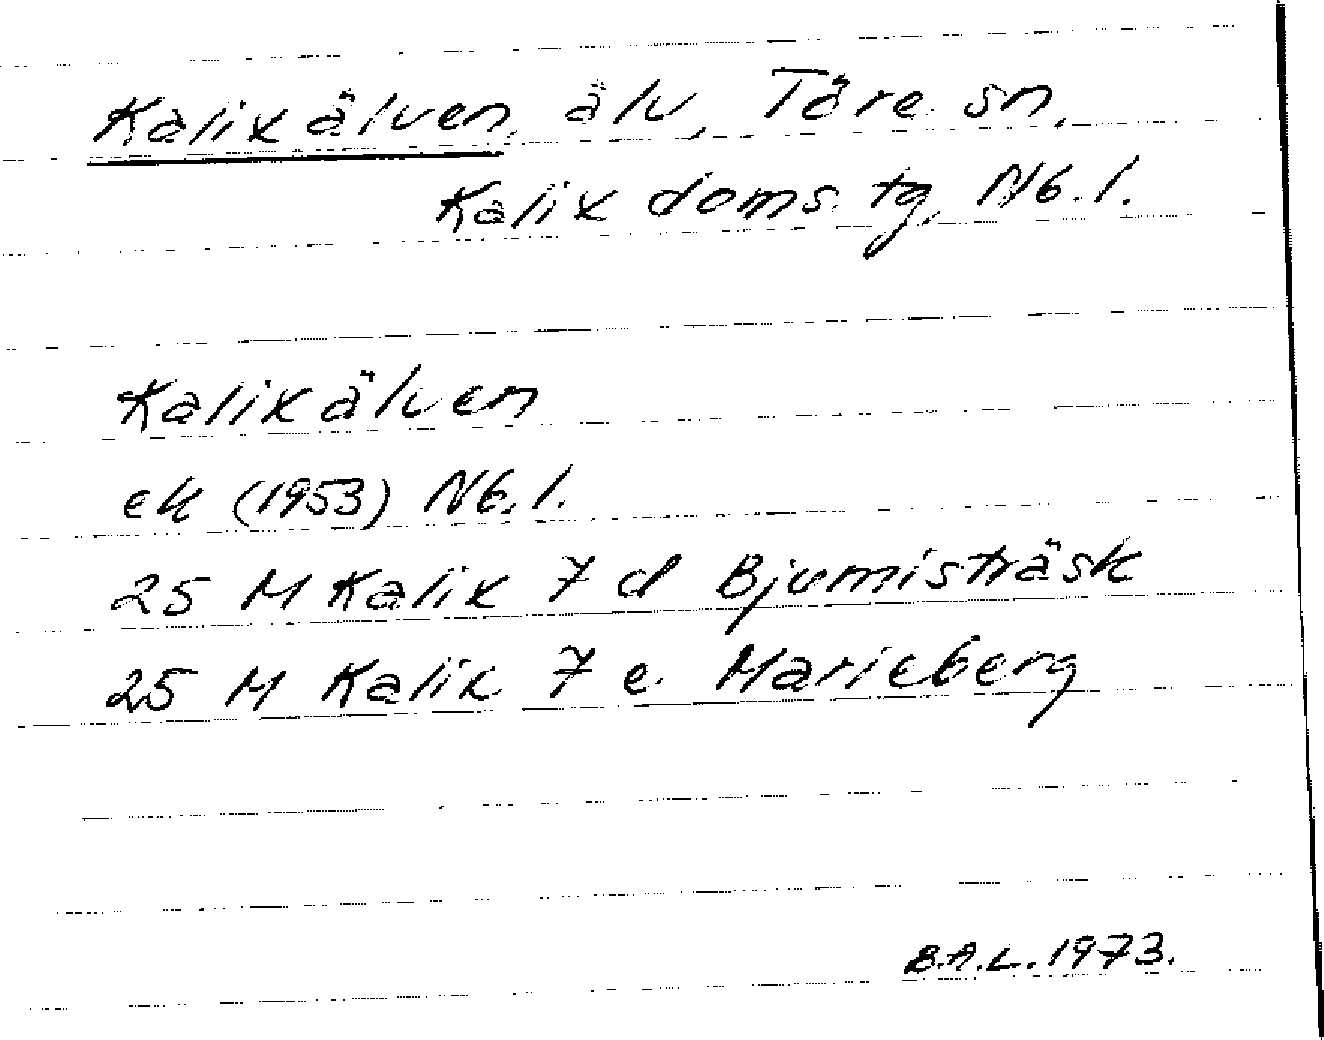 Kalixälven, älv, Töre sn.
Kalix doms. tg, Nb. l.
Kalixälven
ek (1953) Nb. l.
25 M Kalix 7 d Bjumisträsk
25 M Kalix 7 e Marieberg
B.A.L. 1973.